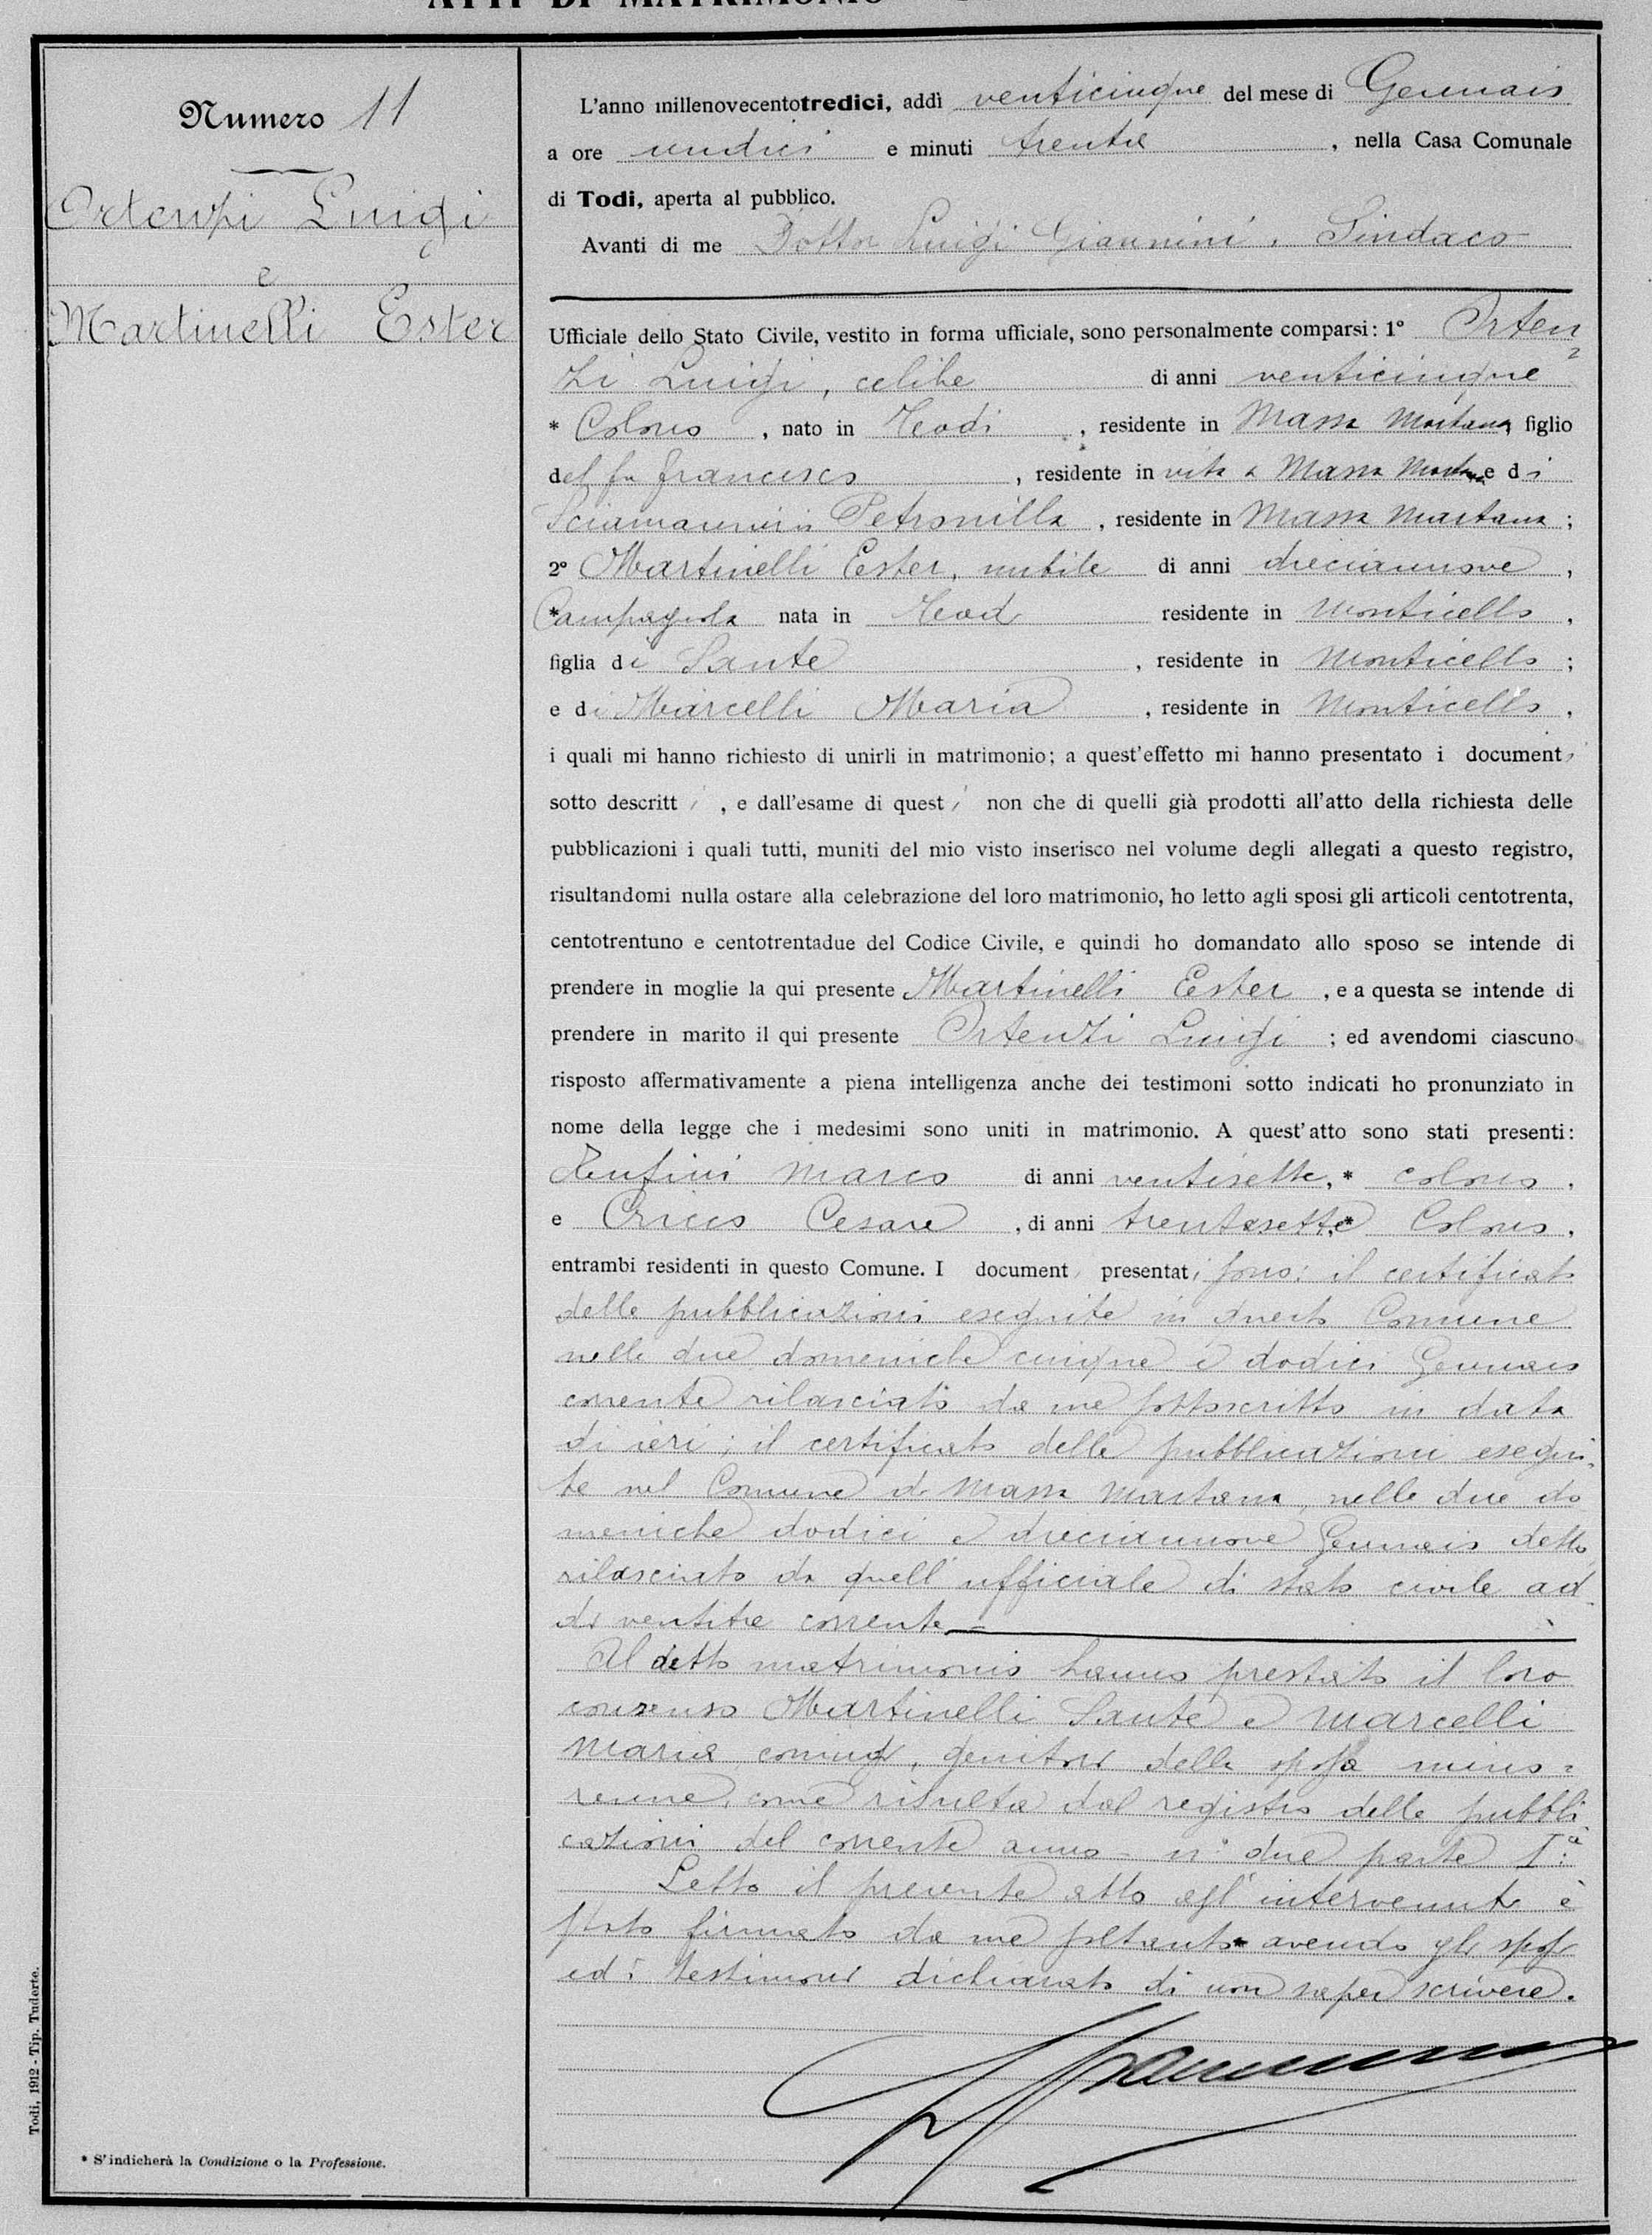 ATTI DI MATRIMONIO
Numero 11
Ortenzi Luigi
e
Martinelli Ester
L'anno millenovecentotredici, addì venticinque del mese di Gennaio
a ore undici e minuti trenta, nella Casa Comunale
di Todi, aperta al pubblico.
Avanti di me Dottor Luigi Giannini, Sindaco
Ufficiale dello Stato Civile, vestito in forma ufficiale, sono personalmente comparsi: 1° Orten
zi Luigi, celibe di anni venticinque
* Colono, nato in Todi, residente in Massa Martana, figlio
del fu Francesco, residente in vita a Massa Martana e di
Petronilla, residente in Massa Martana;
2° Martinelli Ester, nubile di anni diecianove,
* Campagnola nata in Todi residente in Monticello,
figlia di Sante, residente in Monticello;
e di Marcelli Maria, residente in Monticello,
i quali mi hanno richiesto di unirli in matrimonio; a quest'effetto mi hanno presentato i documenti
sotto descritti, e dall'esame di questi non che di quelli già prodotti all'atto della richiesta delle
pubblicazioni i quali tutti, muniti del mio visto inserisco nel volume degli allegati a questo registro,
risultandomi nulla ostare alla celebrazione del loro matrimonio, ho letto agli sposi gli articoli centotrenta,
centotrentuno e centotrentadue del Codice Civile, e quindi ho domandato allo sposo se intende di
prendere in moglie la qui presente Martinelli Ester, e a questa se intende di
prendere in marito il qui presente Ortenzi Luigi; ed avendomi ciascuno
risposto affermativamente a piena intelligenza anche dei testimoni sotto indicati ho pronunziato in
nome della legge che i medesimi sono uniti in matrimonio. A quest'atto sono stati presenti:
Rufini Marco di anni ventisette, * colono,
e Cesare, di anni trentasette, * Colono,
entrambi residenti in questo Comune. I documenti presentati sono: il certificato
delle pubblicazioni eseguite in questo Comune
nelle due domeniche cinque e dodici Gennaio
corrente rilasciato da me sottoscritto in data
di ieri; il certificato delle pubblicazioni esegui-
te nel Comune di Massa Martana, nelle due do
meniche dodici e diecianove Gennaio detto,
rilasciato da quell'ufficiale di stato civile ad
di ventitre corrente
Al detto matrimonio hanno prestato il loro
consenso Martinelli Sante e Marcelli
Maria coniugi, genitori della sposa mino=
renne, come risulta dal registro delle pubbli
cazioni del corrente anno n° due parte Iª.
Letto il presente atto agl'intervenuti è
stato firmato da me soltanto avendo gli sposi
ed i testimoni dichiarato di non saper scrivere.
LGiannini
* S'indicherà la Condizione o la Professione.
Todi, 1912 - Tip. Tuderte.